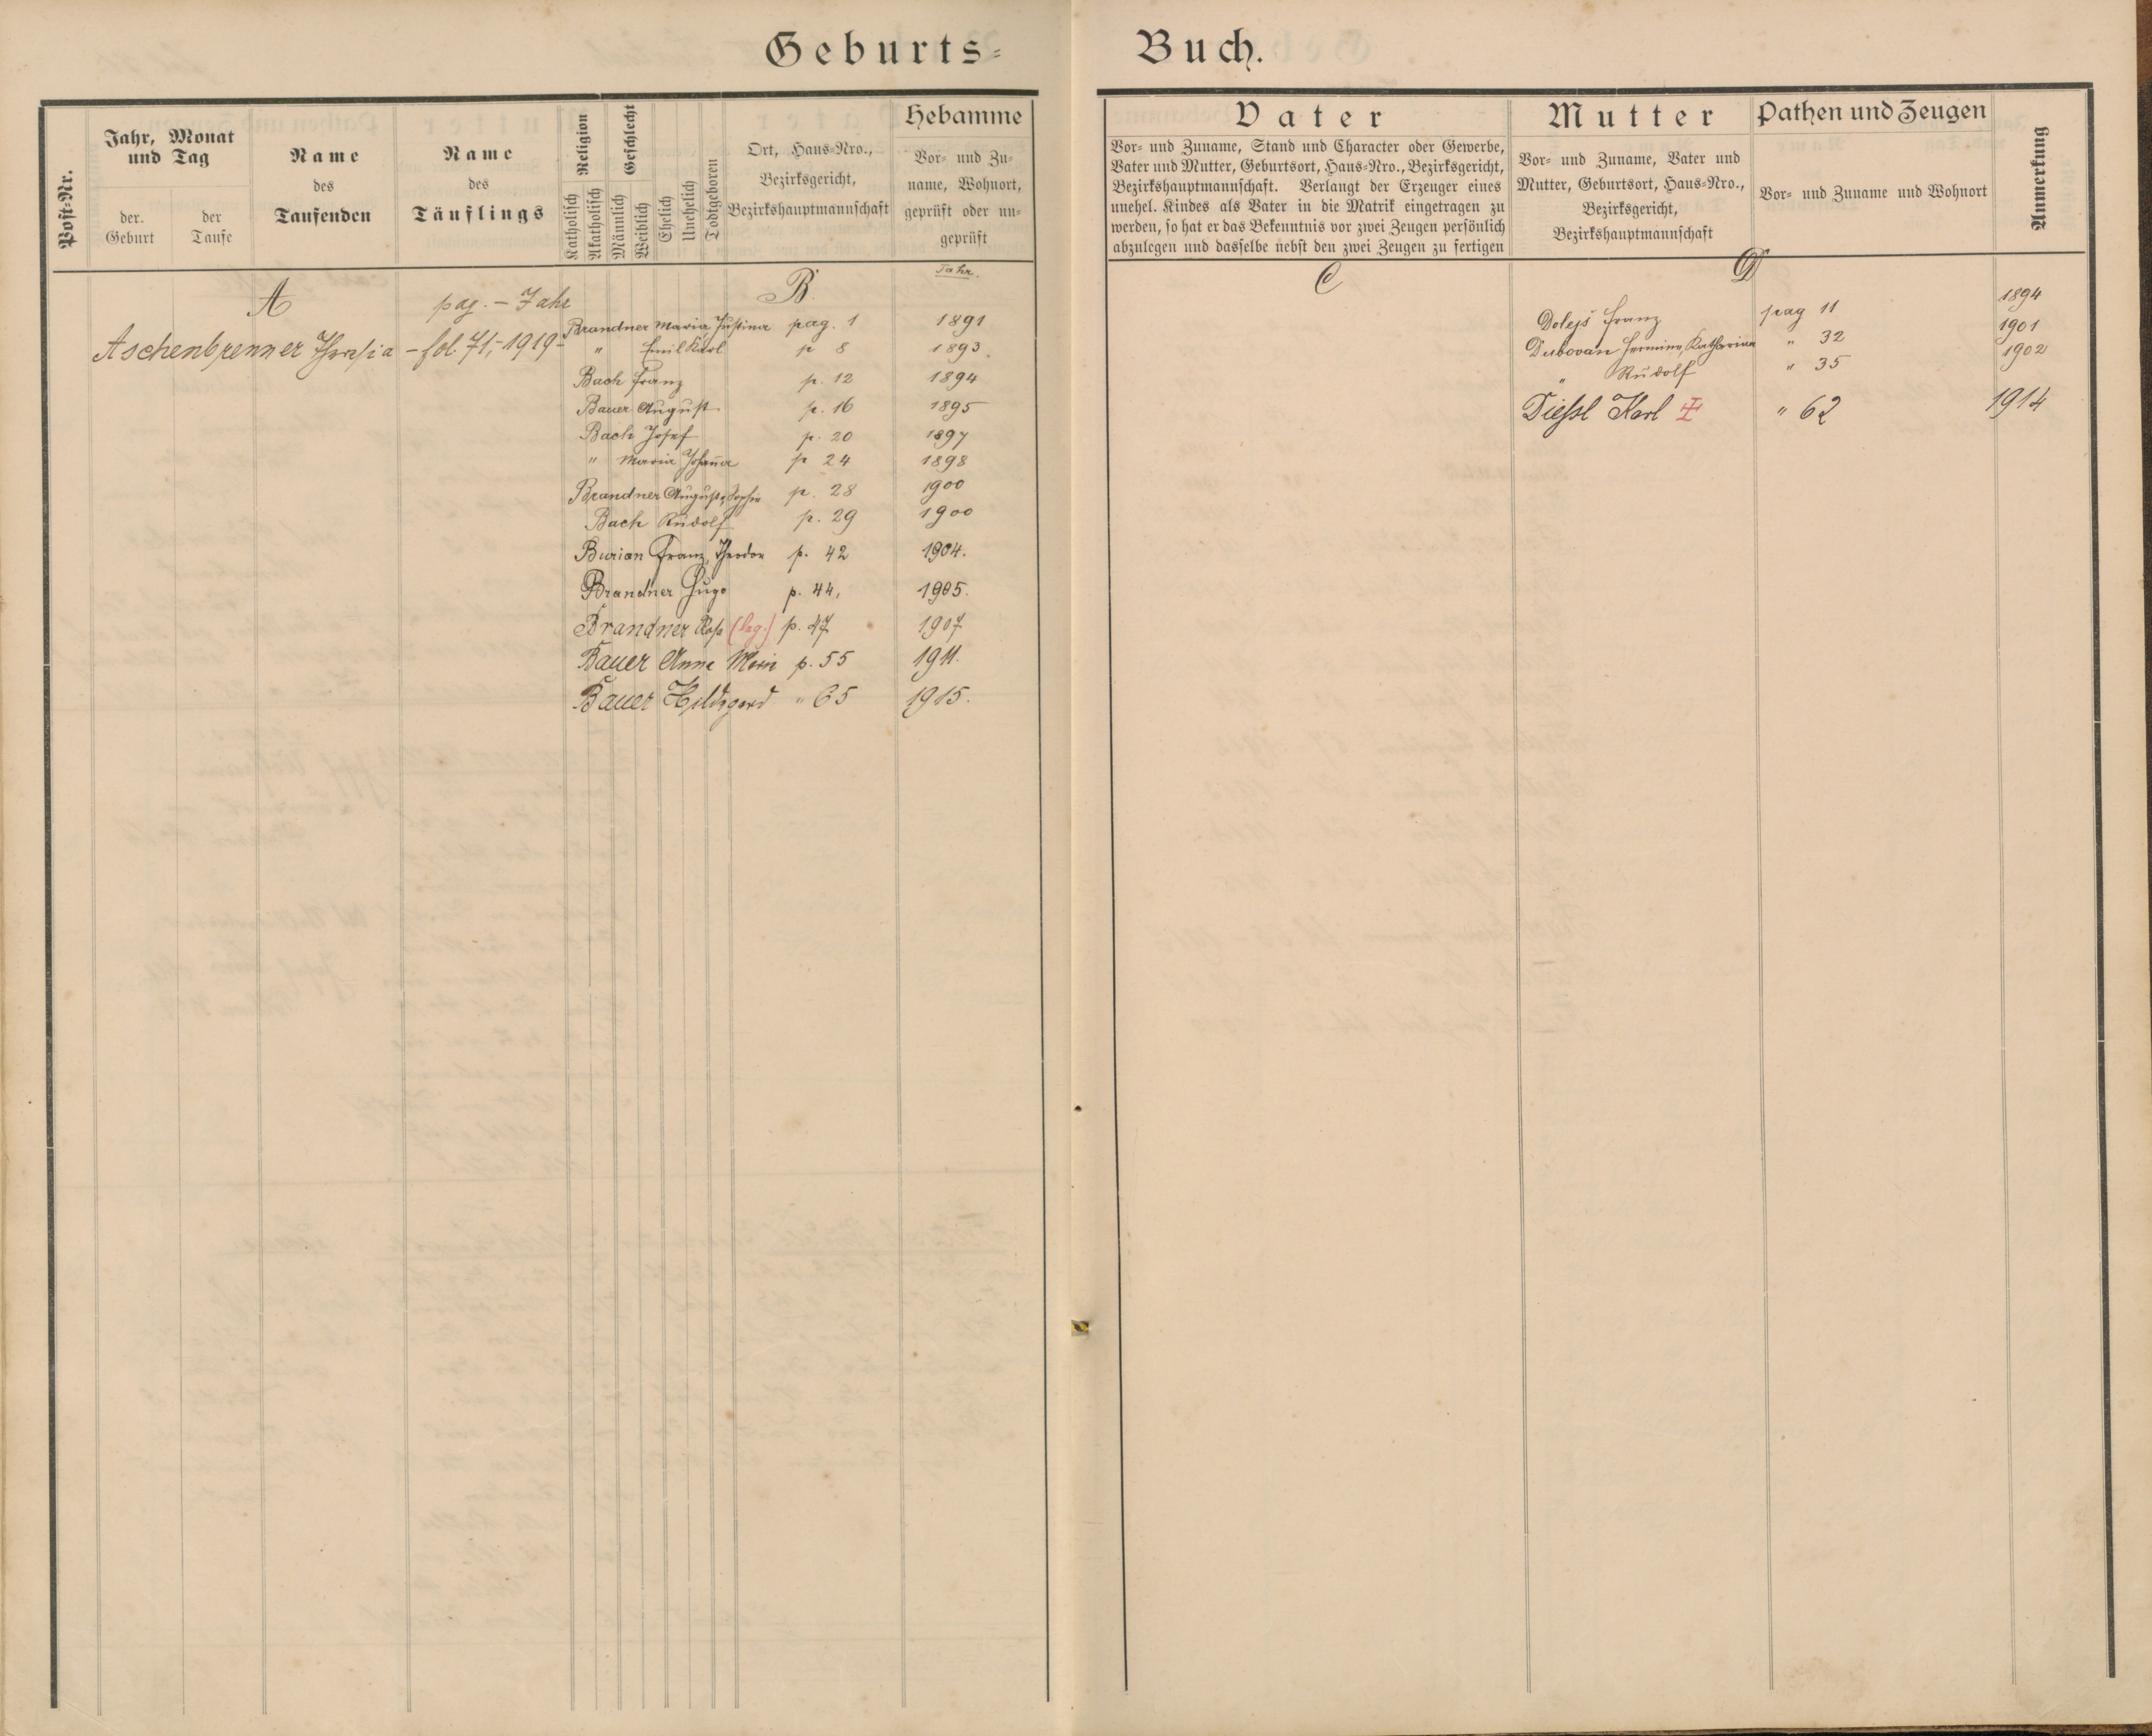 Geburts-
Buch.
Post-Nr.
Jahr, Monat
und Tag
der
Geburt
der
Taufe
Name
des
Taufenden
Name
des
Täuflings
Religion
Katholisch
Akatholisch
Geschlecht
Männlich
Weiblich
Ehelich
Unehelich
Todtgeboren
Ort, Haus-Nro.,
Bezirksgericht,
Bezirkshauptmannschaft
Hebamme
Vor- und Zu-
name, Wohnort,
geprüft oder un-
geprüft
Vater
Vor- und Zuname, Stand und Character oder Gewerbe,
Vater und Mutter, Geburtsort, Haus-Nro., Bezirksgericht,
Bezirkshauptmannschaft. Verlangt der Erzeuger eines
unehel. Kindes als Vater in die Matrik eingetragen zu
werden, so hat er das Bekenntnis vor zwei Zeugen persönlich
abzulegen und dasselbe nebst den zwei Zeugen zu fertigen
Mutter
Vor- und Zuname, Vater und
Mutter, Geburtsort, Haus-Nro.,
Bezirksgericht,
Bezirkshauptmannschaft
Pathen und Zeugen
Vor- und Zuname und Wohnort
Anmerkung
A
pag. - Jahr
Aschenbrenner Theresia - fol. 71,- 1919-
B.
Jahr.
Brandner Maria Justina pag. 1 1891
" Emil Karl p 8 1893.
Bach Franz p. 12 1894
Bauer August p. 16 1895
Bach Josef p. 20 1897
" Maria Johanna p 24 1898
Brandner Auguste Sophie p. 28 1900
Bach Rudolf p. 29 1900
Burian Franz, Theodor p. 42 1904.
Brandner Hugo p. 44, 1905.
Brandner Rosa (leg.) p. 47 1907
Bauer Anna Maria p. 55 1911.
Bauer Hildegard " 65 1915.
C
D
Dolejs Franz pag 11 1894
Dubovan Hermine, Katharina " 32 1901
" Rudolf " 35 1902
Diessl Karl ‡ " 62 1914